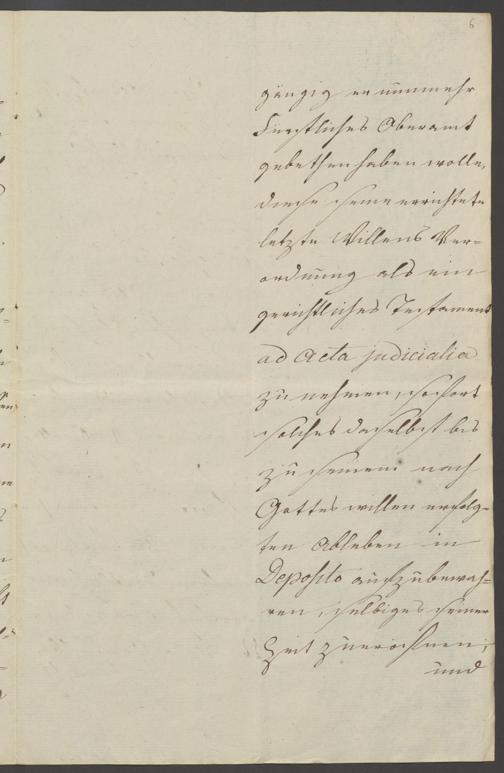 6
gängig er nunmehr
Fürstliches Oberamt
gebethen haben wolle,
diese seine errichtete
letzte Willens Ver=
ordnung als ein
gerichtliches Testament
ad acta judicialia
zu nehmen, sofort
solches daselbst bis
zu seinem nach
Gottes willen erfolg=
ten Ableben in
Deposito aufzubewah=
ren, selbiges seiner
Zeit zu eröffnen;
und